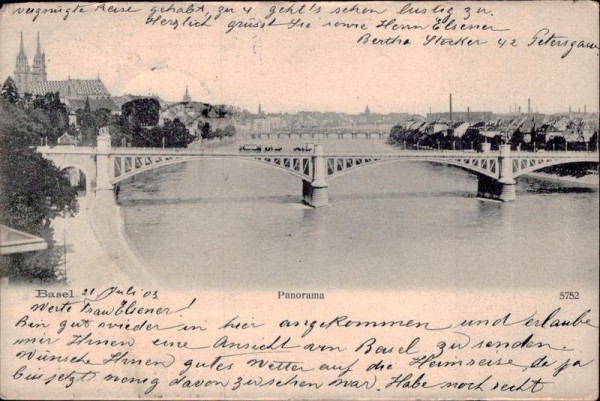 vergnügte Reise gehabt, zu 4 geht's schon lustig zu.
Herzlich grüsst Sie sowie Herrn Elsener
Bertha Stocker 42 Petersgasse
Basel 21 Juli 03
Panorama
5752
Werte Frau Elsener!
Bin gut wieder in hier angekommen und erlaube
mir Ihnen eine Ansicht von Basel zu senden.
Wünsche Ihnen gutes Wetter auf die Heimreise, da ja
bis jetzt wenig davon zu sehen war. Habe noch recht